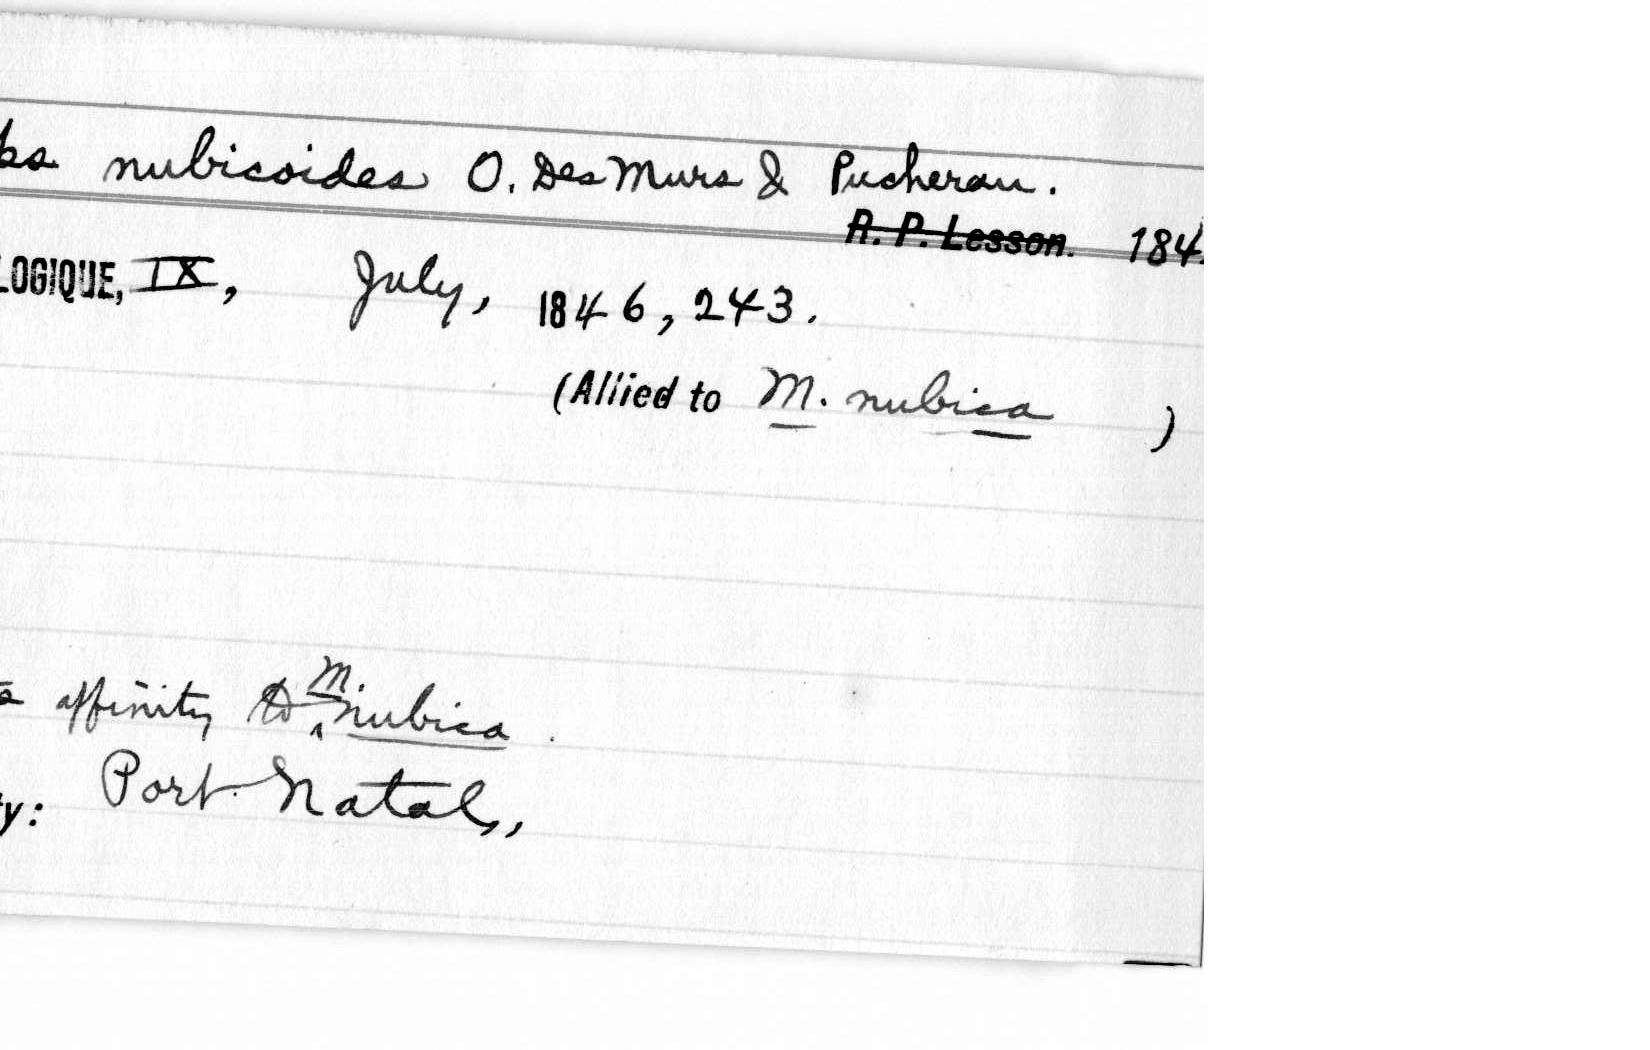 ps nubicoides O. Des Murs & Pucheran.
R. P. Lesson. 184
LOGIQUE, IX, July, 1846, 243.
(Allied to M. nubica )
affinity to M. nubica.
ty: Port Natal,,